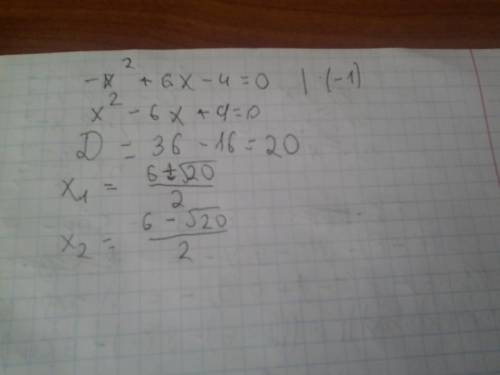 -x² + 6x - 4 = 0 | (-1)
x² - 6x + 4 = 0
D = 36 - 16 = 20
x₁ = (6 + √20) / 2
x₂ = (6 - √20) / 2